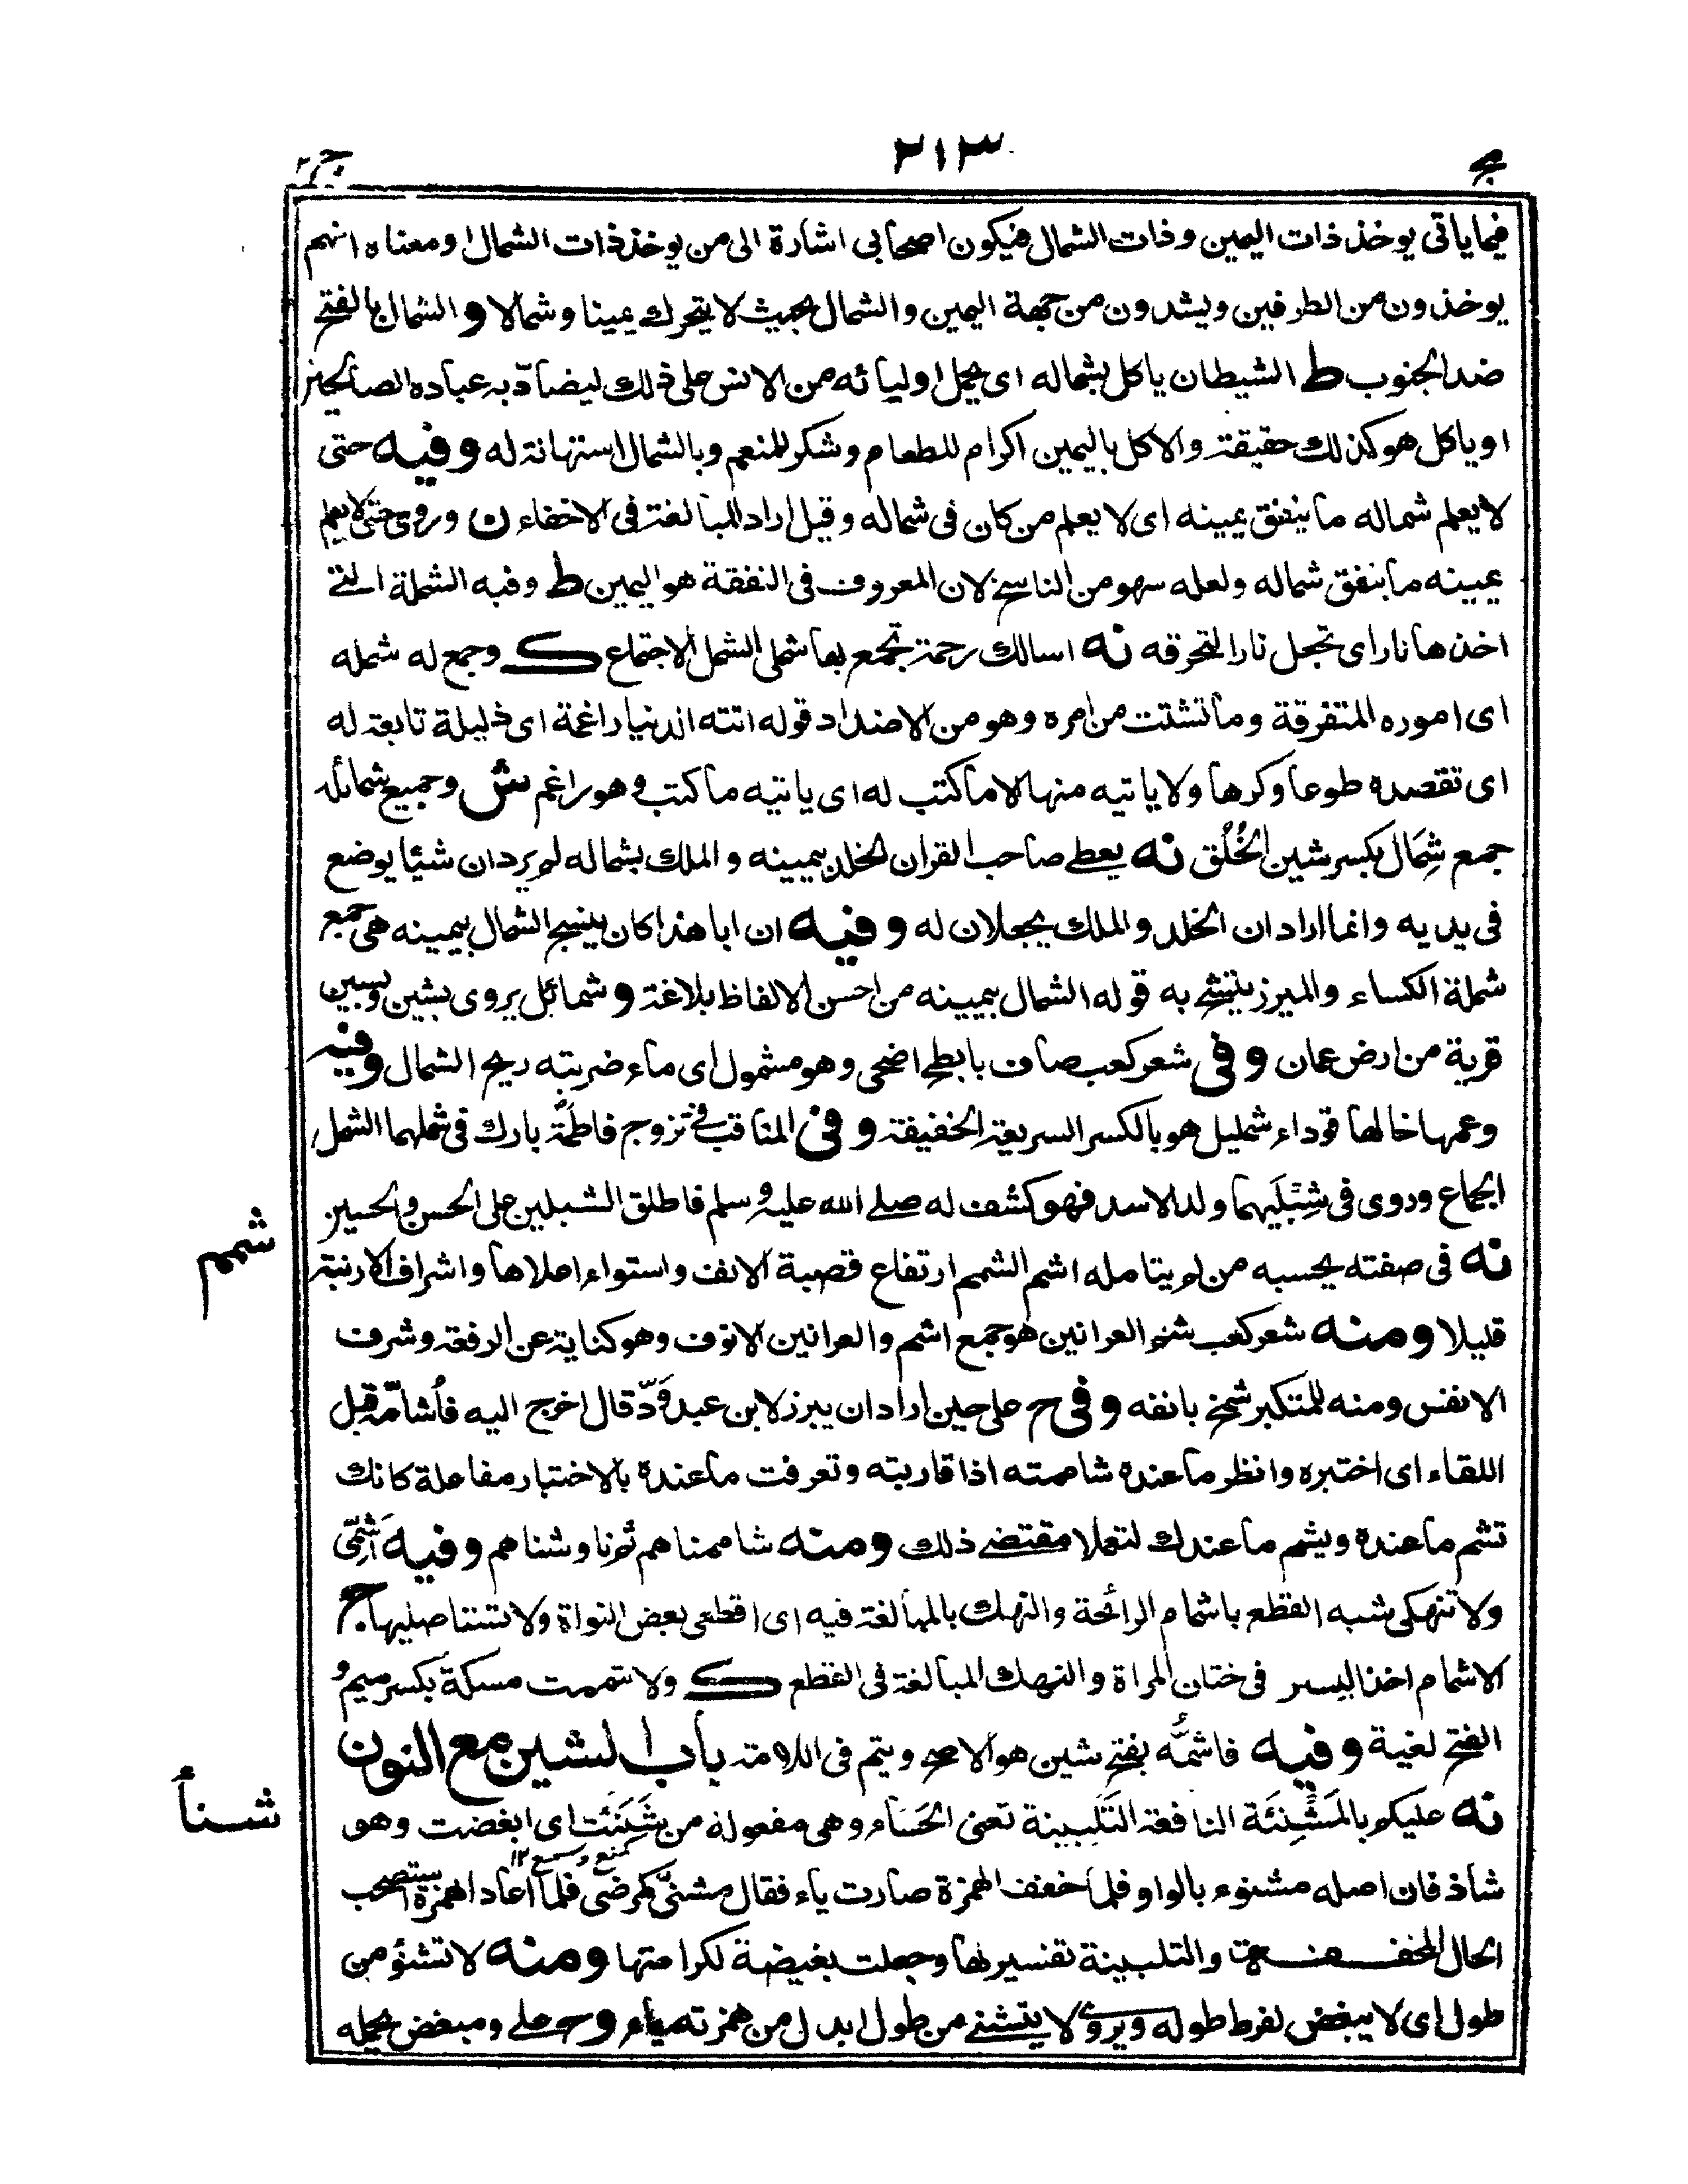 ٢١٣
فيما ياتى يوخذ ذات اليمين وذات الشمال فيكون اصحابى اشارة الى من يوخذ ذات الشمال ومعناه انهم
يوخذون من الطرفين ويشدون من جهة اليمين والشمال بحيث لا يتحرك يمينا وشمالا و الشمال بالفتح
ضد الجنوب ط الشيطان ياكل بشماله اى يحمل اوليائه من الانس على ذلك ليضادّ به عباده الصالحين
او ياكل هو كذلك حقيقة والاكل باليمين اكرام للطعام وشكر للمنعم وبالشمال استهانة له وفيه حتى
لا يعلم شماله ما ينفق يمينه اى لا يعلم من كان فى شماله وقيل اراد المبالغة فى الاخفاء ن وروى حتى لا يعلم
يمينه ما ينفق شماله ولعله سهو من الناسخ لان المعروف فى النفقة هو اليمين ط وفيه الشملة التى
اخذها نارا اى تجعل نارا لتحرقه نه اسالك رحمة تجمع بها شملى الشمل الاجتماع ك وجمع له شمله
اى اموره المتفرقة وما تشتت من امره وهو من الاضداد قوله اتته الدنيا راغمة اى ذليلة تابعة له
اى تقصده طوعا وكرها ولا ياتيه منها الا ما كتب له اى ياتيه ما كتب وهو راغم ش وجميع شمائله
جمع شِمَال بكسر شين الخُلُق نه يعطى صاحب القران الخلد بيمينه والملك بشماله لم يرد ان شيئا يوضع
فى يديه وانما اراد ان الخلد والملك يجعلان له وفيه ان ابا هذا كان ينسج الشمال بيمينه هى جمع
شملة الكساء والميزر يتشح به قوله الشمال بيمينه من احسن الالفاظ بلاغة و شمائل يروى بشين وسين
قرية من ارض عمان وفى شعر كعب صاف بابطح اضحى وهو مشمول اى ماء ضربته ريح الشمال وفيه
وعمها خالها قوداء شمليل هو بالكسر السريعة الخفيفة وفى المناقب فى تزوج فاطمة بارك فى شملهما الشمل
الجماع وروى فى شِبْلَيهما ولد الاسد فهو كشف له صلى الله عليه وسلم فاطلق الشبلين على الحسن والحسين
شمم
نه فى صفته يحسبه من لم يتامله اشم الشمم ارتفاع قصبة الانف واستواء اعلاها واشراف الارنبة
قليلا ومنه شعر كعب شم العرانين هو جمع اشم والعرانين الانوف وهو كناية عن الرفعة وشرف
الانفس ومنه للمتكبر شمخ بانفه وفى ح على حين اراد ان يبرز لابن عبد وَدّ قال اخرج اليه فاُشامّه قبل
اللقاء اى اختبره وانظر ما عنده شاممته اذا قاربته وتعرفت ما عنده بالاختبار مفاعلة كانك
تشم ما عنده ويشم ما عندك لتعملا مقتضى ذلك ومنه شاممناهم ثم ناوشناهم وفيه اَشِمّى
ولا تنهكى شبه القطع باشمام الرائحة والنهك بالمبالغة فيه اى اقطعى بعض النواة ولا تستاصليها ج
الاشمام اخذ اليسير فى ختان المراة والنهك المبالغة فى القطع ك ولا شممت مسكة بكسر ميم و
الفتح لغية وفيه فاشمُّه بفتح شين هو الاصح ويتم فى اللامة باب الشين مع النون
شنأ
نه عليكم بالمَشْنِئَة النافعة التَلْبِينة تعنى الحَسَاء وهى مفعولة من شَنِئَت اى ابغضت وهو
كمنع وسمع ١٢
شاذ فان اصله مشنوء بالواو فلما خفف الهمزة صارت ياء فقال مشنىّ كمرضى فلما اعاد الهمزة استصحب
الحال المخففة والتلبينة تفسير لها وجعلت بغيضة لكراهتها ومنه لا تشنؤ من
طول اى لا يبغض لفرط طوله ويروى لا يتشنى من طول ابدل من همزته ياء وح على ومبغض يحمله